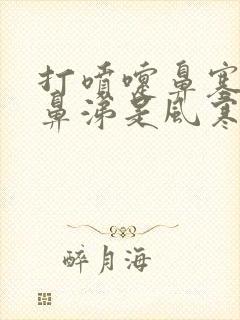 打喷嚏鼻塞
鼻涕是风寒
醉月海